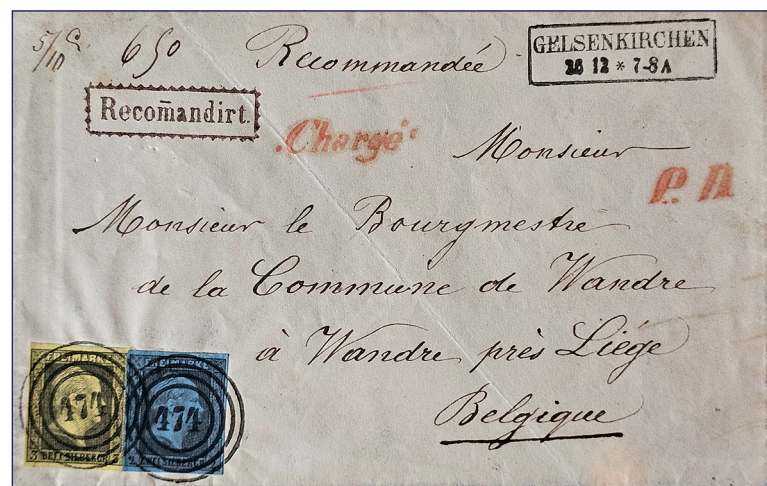 5/10 650 Recommandée
GELSENKIRCHEN
26 12 * 7-8 A
Recom̄andirt.
Chargé
Monsieur
P. D
Monsieur le Bourgmestre
de la Commune de Wandre
à Wandre près Liége
Belgique
FREIMARKE FREIMARKE
474 474
3 DREI SILBERGR 3 2 ZWEI SILBERGR 2